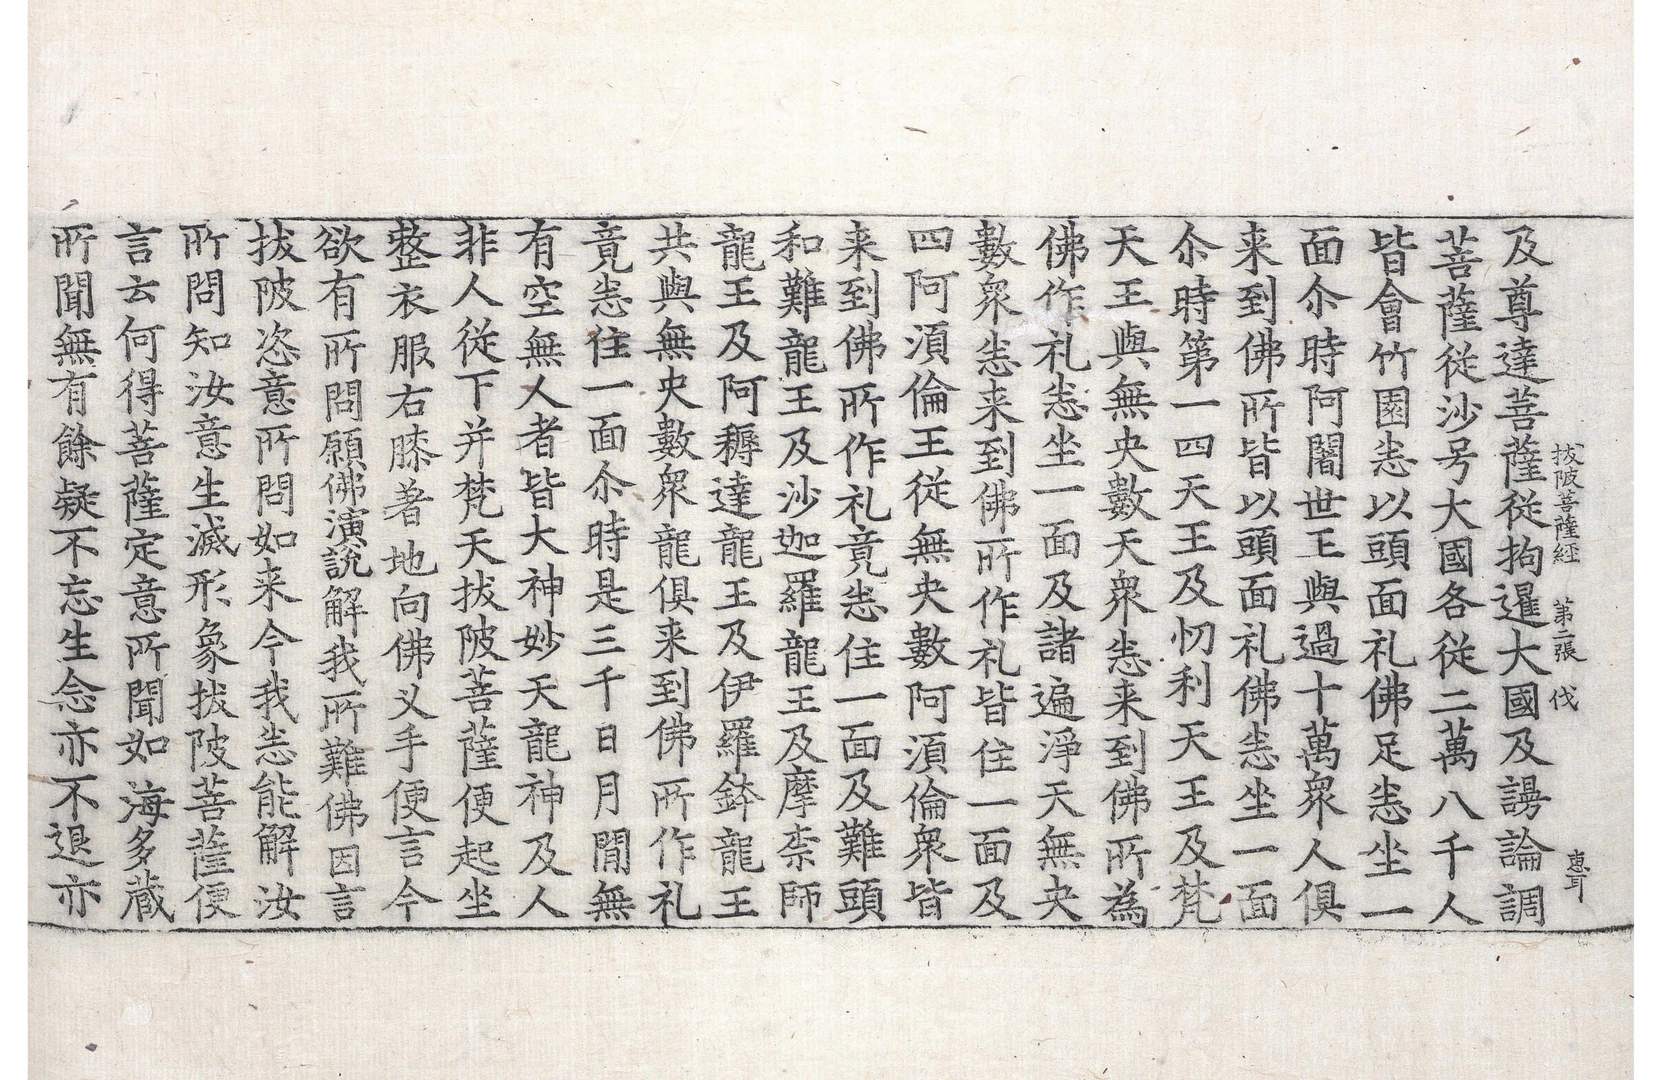 拔陂菩薩經 第二張 伐 惠耳
及尊達菩薩從拘暹大國及謾論調
菩薩從沙号大國各從二萬八千人
皆會竹園悉以頭面礼佛足悉坐一
面尒時阿闍世王與過十萬衆人俱
来到佛所皆以頭面礼佛悉坐一面
尒時第一四天王及忉利天王及梵
天王與無央數天衆悉来到佛所為
佛作礼悉坐一面及諸遍淨天無央
數衆悉来到佛所作礼皆住一面及
四阿湏倫王從無央數阿湏倫衆皆
来到佛所作礼竟悉住一面及難頭
和難龍王及沙迦羅龍王及摩柰師
龍王及阿耨達龍王及伊羅鉢龍王
共與無央數衆龍俱来到佛所作礼
竟悉住一面尒時是三千日月閒無
有空無人者皆大神妙天龍神及人
非人從下并梵天拔陂菩薩便起坐
整衣服右膝著地向佛乂手便言今
欲有所問願佛演說解我所難佛因言
拔陂恣意所問如来今我悉能解汝
所問知汝意生滅形象拔陂菩薩便
言云何得菩薩定意所聞如海多藏
所聞無有餘疑不忘生念亦不退亦